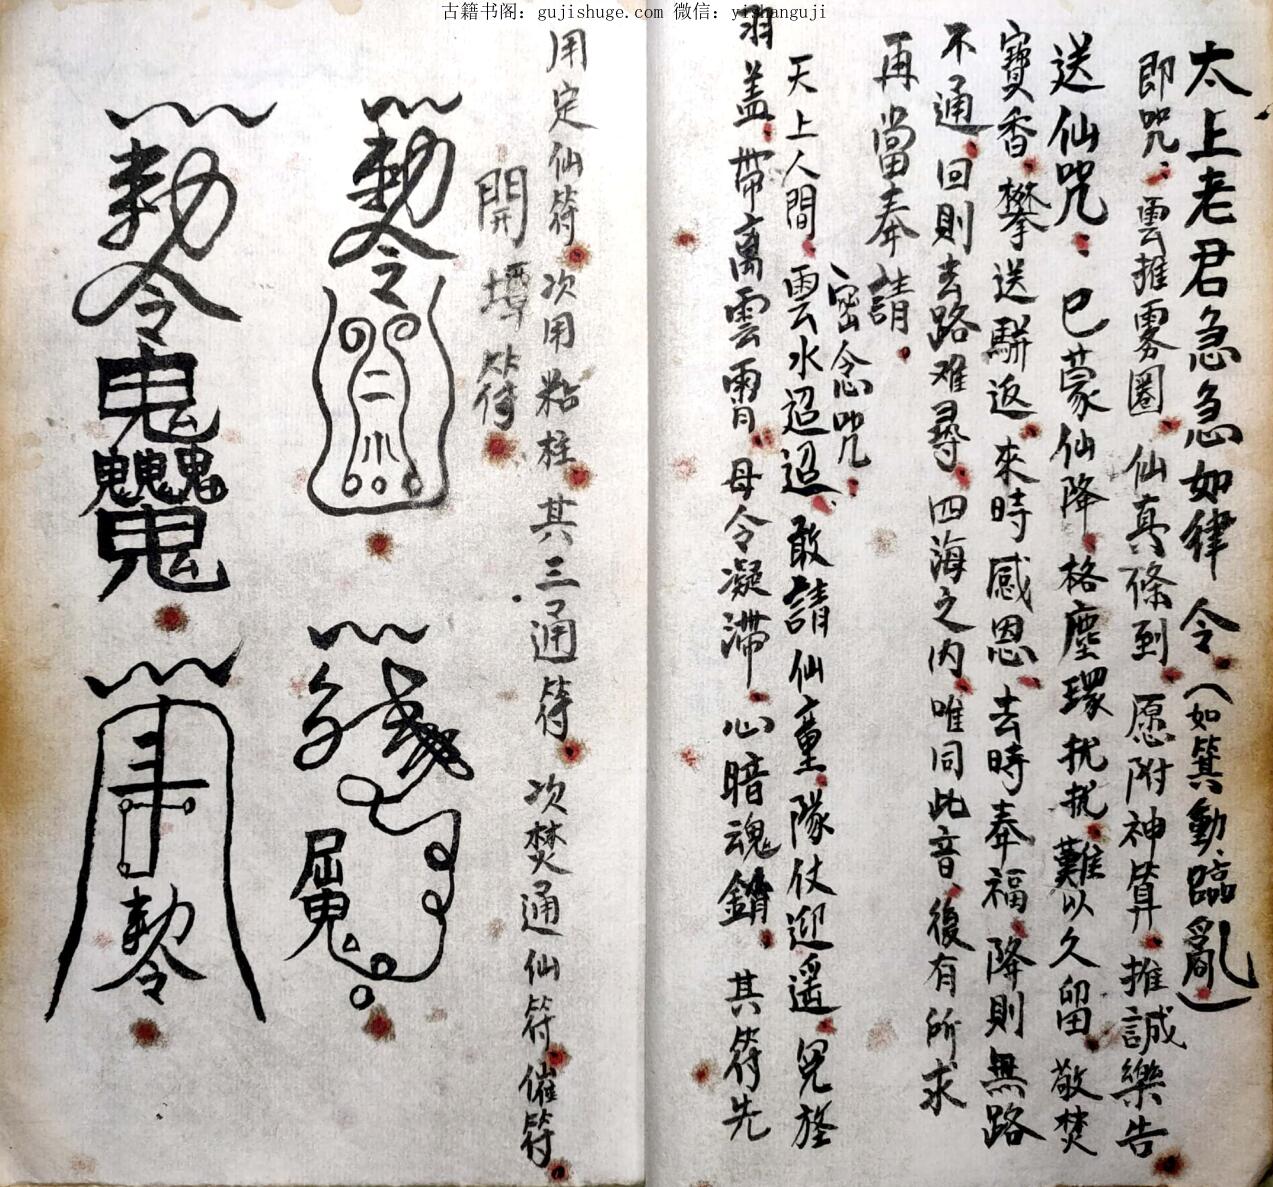 古籍书阁：gujishuge.com 微信：yishanguji
太上老君急急如律令（如箕動臨亂）
即咒：雲推雾圈仙真條到愿附神算推誠樂告
送仙咒：已蒙仙降格塵環扰扰難以久留敬焚
寶香攀送駢返來時感恩去時奉福降則無路
不通回則去路难尋四海之内唯同此音後有所求
再當奉請
密念咒：
天上人間雲水迢迢敢請仙童隊仗迎遥旌
羽盖帶离雲霄毋令凝滞心暗魂銷其符先
用定仙符次用粘柱其三通符次焚通仙符催符
開壇符
勅令
勅令鬼
勅令